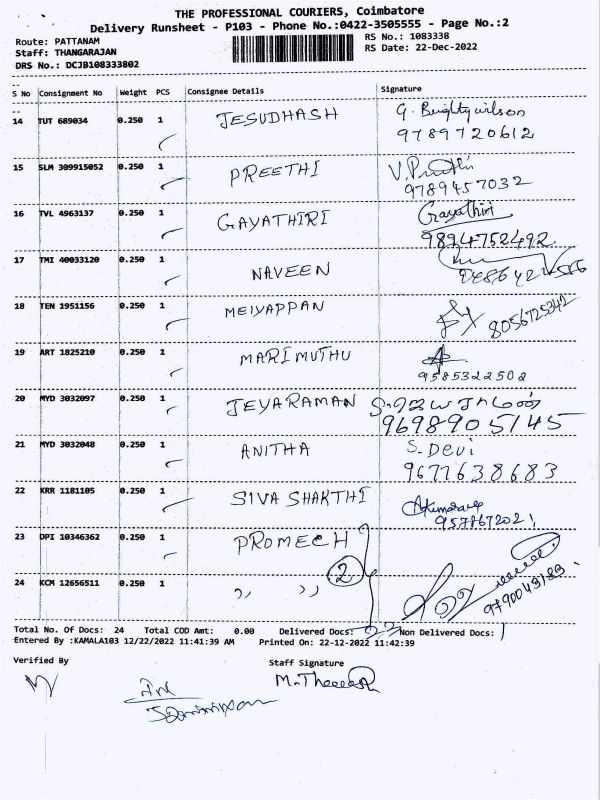 THE PROFESSIONAL COURIERS, Coimbatore
Delivery Runsheet - P103 - Phone No.:0422-3505555 - Page No.:2
Route: PATTANAM RS No.: 1083338
Staff: THANGARAJAN RS Date: 22-Dec-2022
DRS No.: DCJB108333802
S No Consignment No Weight PCS Consignee Details Signature
14 TUT 689034 0.250 1 JESUDHASH G. Brightywilson
9789720612
15 SLM 309915052 0.250 1 PREETHI V.Preethi
9789457032
16 TVL 4963137 0.250 1 GAYATHIRI Gayathiri
9894752492
17 TMI 40033120 0.250 1 NAVEEN
18 TEN 1951156 0.250 1 MEIYAPPAN 8056725342
19 ART 1825210 0.250 1 MARIMUTHU
9585322502
20 MYD 3032097 0.250 1 JEYARAMAN
9698905145
21 MYD 3032048 0.250 1 ANITHA S. Devi
9677638683
22 KRR 1181105 0.250 1 SIVA SHAKTHI
23 DPI 10346362 0.250 1 PROMECH
2
24 KCM 12656511 0.250 1 ,, ,, 9790043183
Total No. Of Docs: 24 Total COD Amt: 0.00 Delivered Docs: 23 Non Delivered Docs: 1
Entered By :KAMALA103 12/22/2022 11:41:39 AM Printed On: 22-12-2022 11:42:39
Verified By Staff Signature